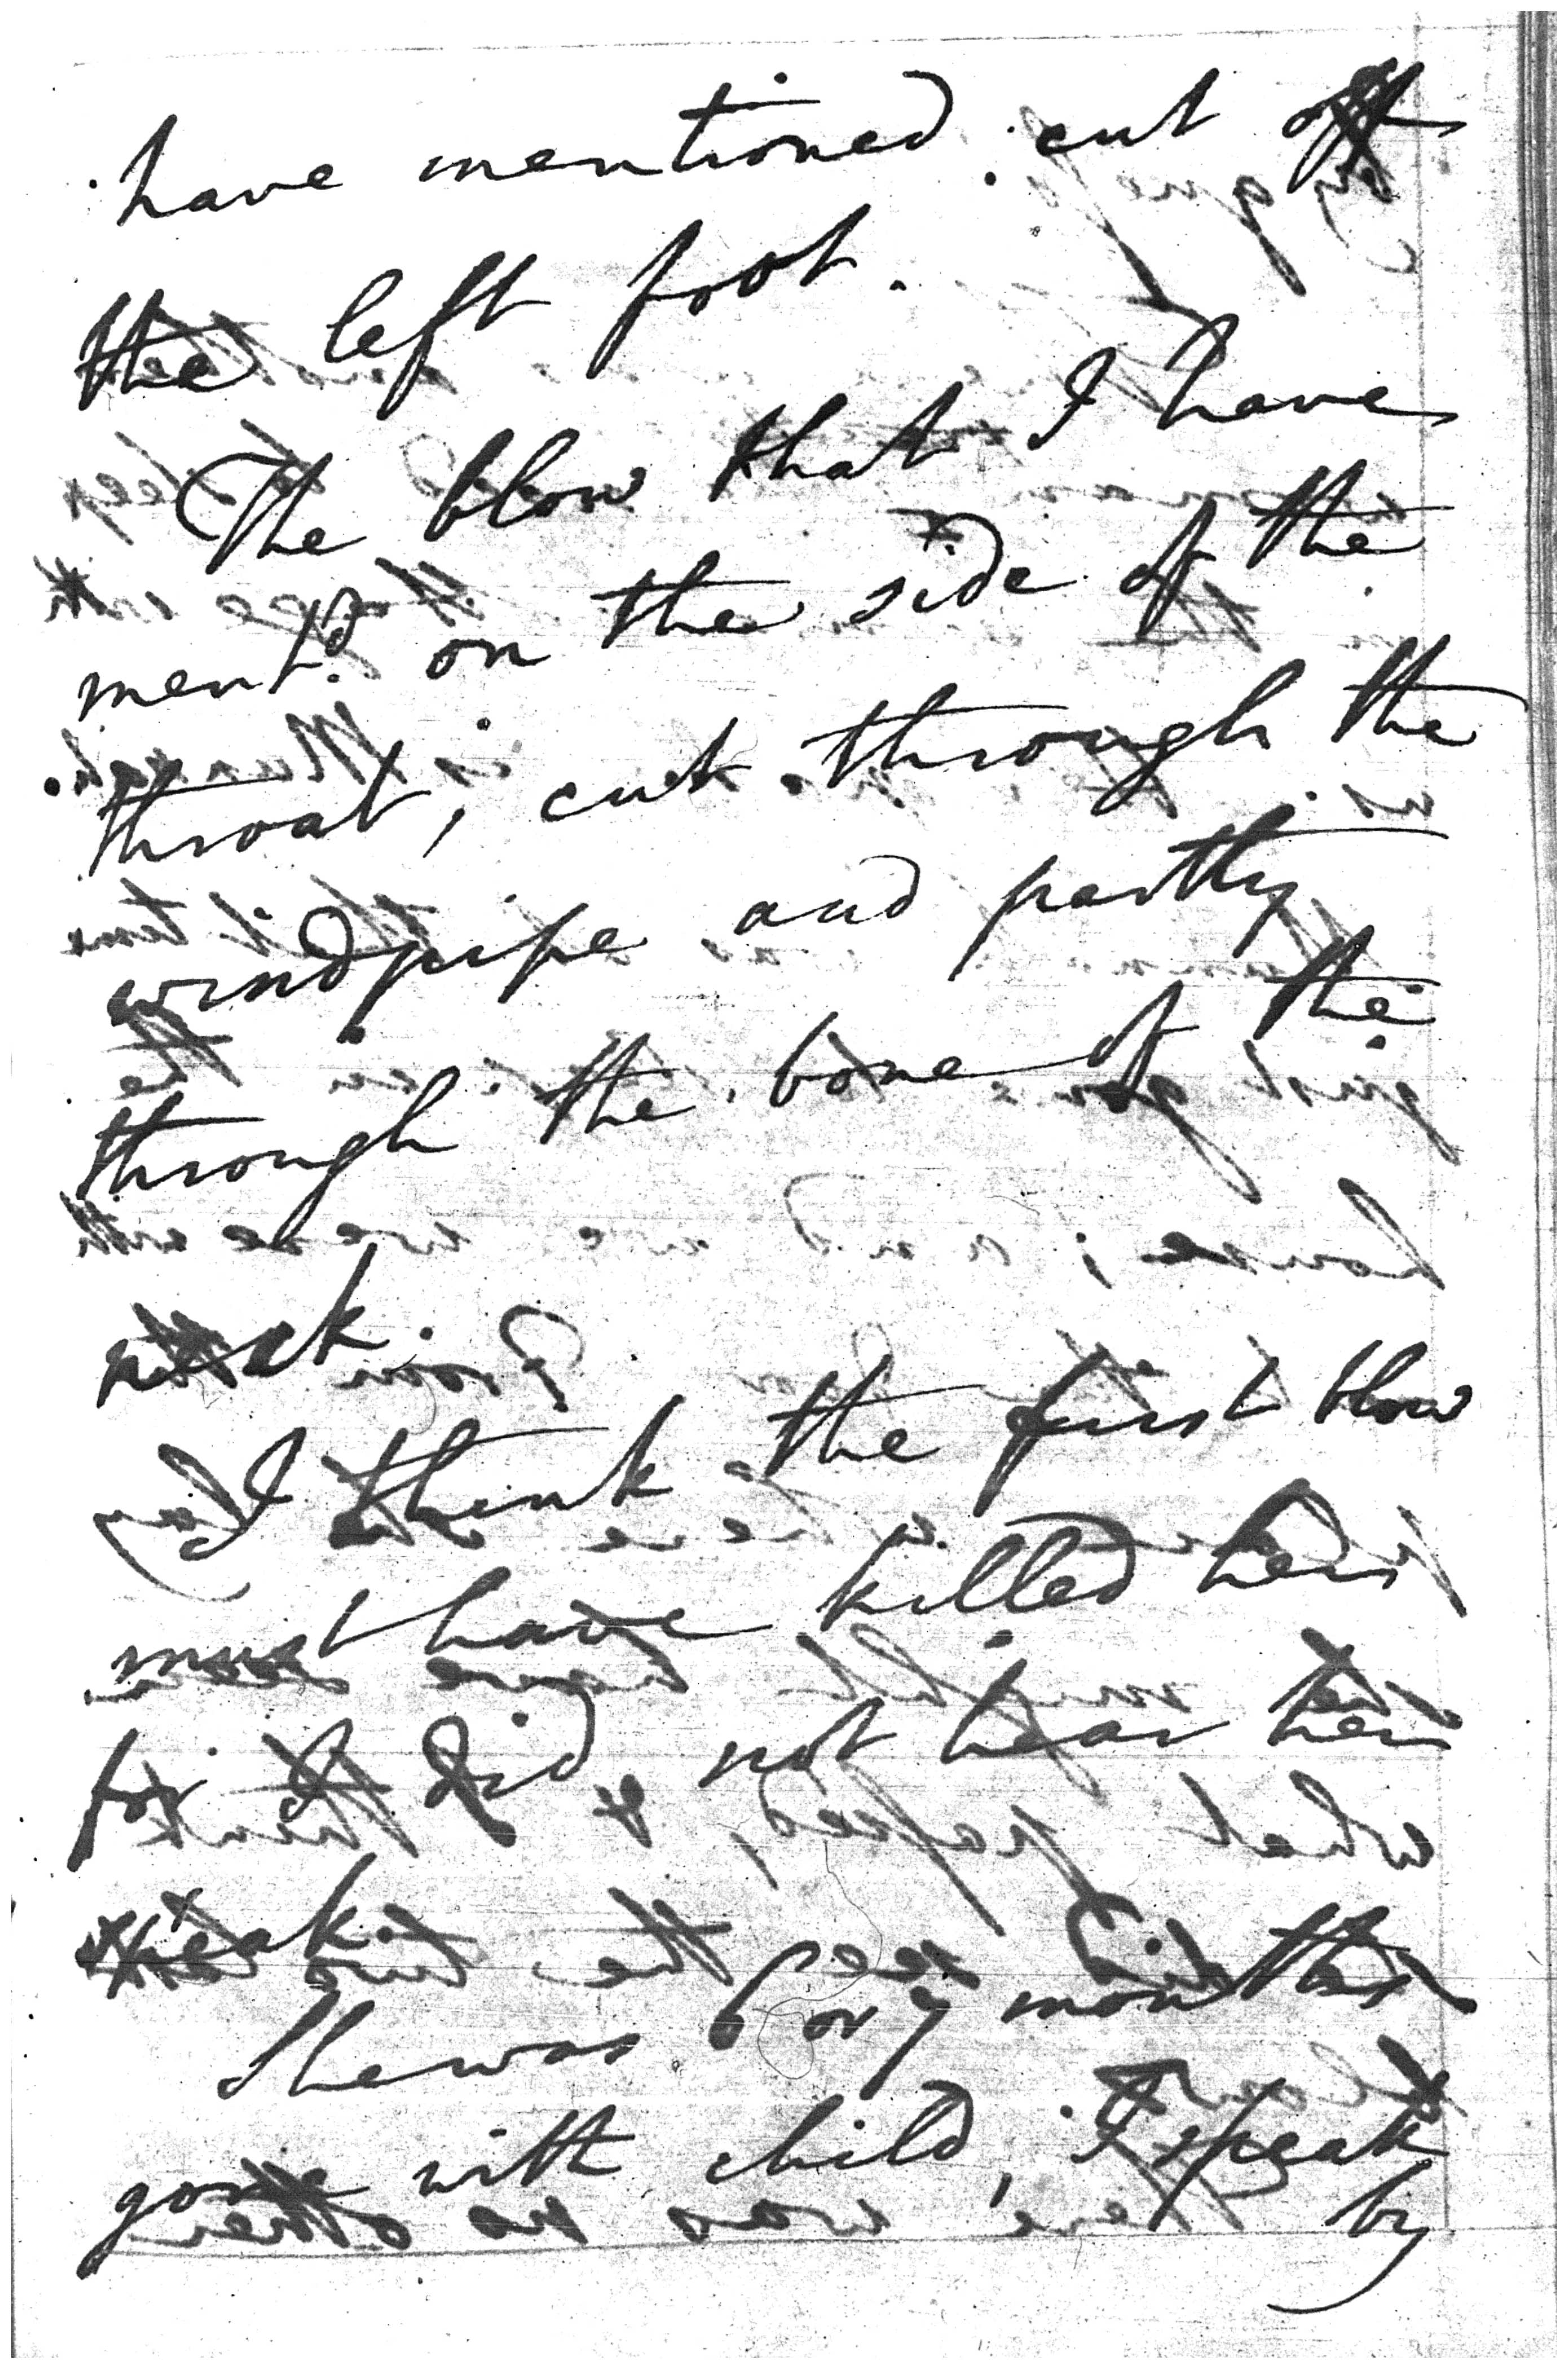 have mentioned cut off
the left foot.
The blow that I have
ment.d on the side of the
throat, cut through the
windpipe and partly
through the bone of the
neck.
I think the first blow
must have killed her
for I did not hear her
speak.
She was 6 or 7 months
gone with child, I speak
by